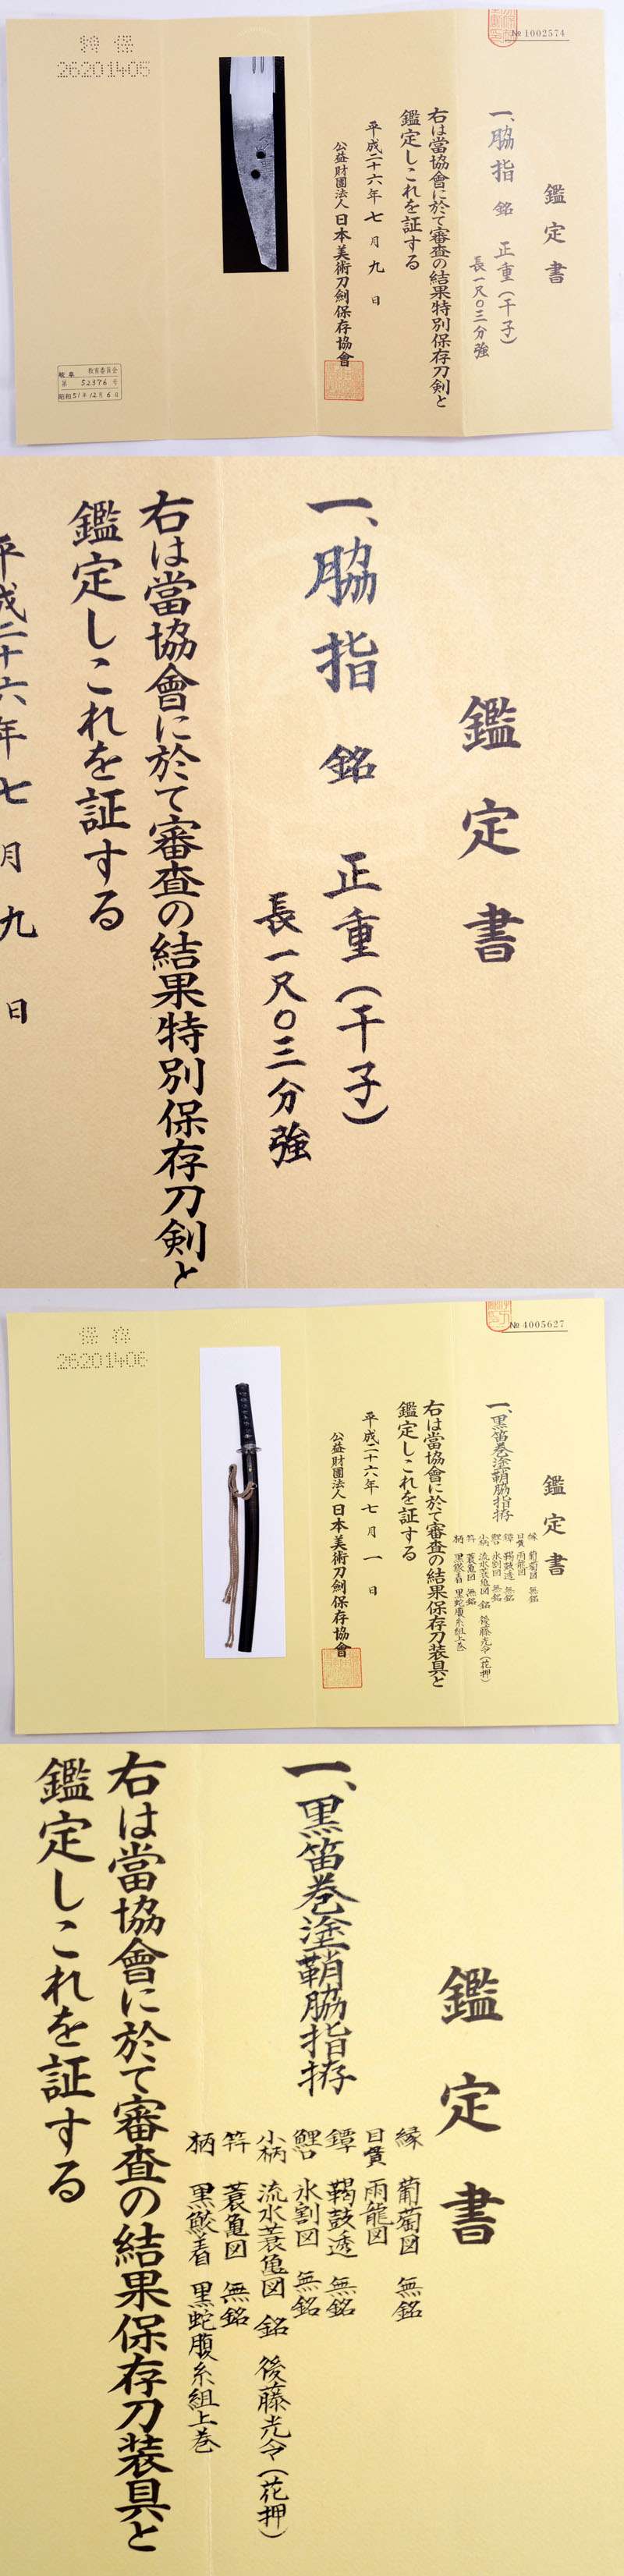 № 1002574
鑑定書
一、脇指 銘 正重(千子)
長一尺〇三分強
右は當協會に於て審査の結果特別保存刀剣と
鑑定しこれを証する
平成二十六年 七月 九日
公益財團法人 日本美術刀剣保存協會
特保
26201405
岐阜 教育委員会
第 52376 号
昭和51年12月6日
鑑定書
一、脇指 銘 正重(千子)
長一尺〇三分強
右は當協會に於て審査の結果特別保存刀剣と
鑑定しこれを証する
平成二十六年七月九日
№ 4005627
鑑定書
一、黒笛巻塗鞘脇指拵
縁 葡萄図 無銘
目貫 雨龍図
鐔 鞨鼓透 無銘
鯉口 氷割図 無銘
小柄 流水蓑亀図 銘 後藤光令(花押)
笄 蓑亀図 無銘
柄 黒鮫着 黒蛇腹糸組上巻
右は當協會に於て審査の結果保存刀装具と
鑑定しこれを証する
平成二十六年 七月 一日
公益財團法人 日本美術刀剣保存協會
保存
26201406
鑑定書
一、黒笛巻塗鞘脇指拵
縁 葡萄図 無銘
目貫 雨龍図
鐔 鞨鼓透 無銘
鯉口 氷割図 無銘
小柄 流水蓑亀図 銘 後藤光令(花押)
笄 蓑亀図 無銘
柄 黒鮫着 黒蛇腹糸組上巻
右は當協會に於て審査の結果保存刀装具と
鑑定しこれを証する